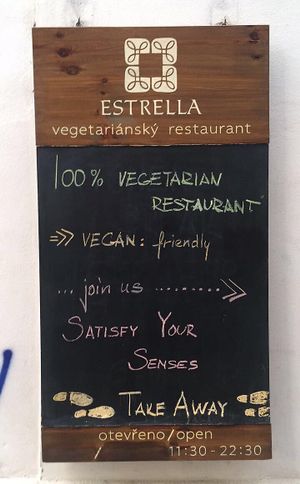 ESTRELLA
vegetariánský restaurant
100% VEGETARIAN
RESTAURANT
=>> VEGAN: friendly
... join us ..........>>
SATISFY YOUR
SENSES
TAKE AWAY
otevřeno/open
11:30 - 22:30